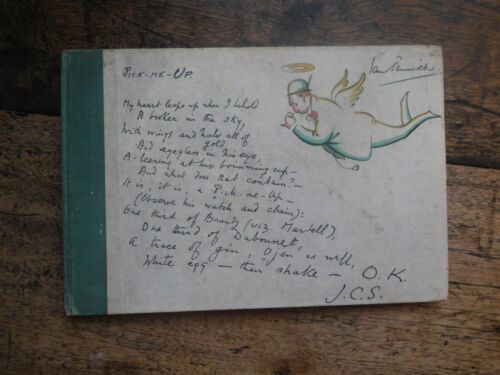 PICK-ME-UP.
My heart leaps up when I behold
A broker in the sky,
With wings and halo all of
gold,
And eyeglass in his eye,
A-leering at his brimming cup –
And what does that contain? –
It is, it is, a Pick-me-Up –
(Observe his watch and chain):
One third of Brandy (viz. Martell),
One third of Dubonnet, as well,
A trace of gin, Ojen is well,
White egg – then shake – O.K.
J.C.S.